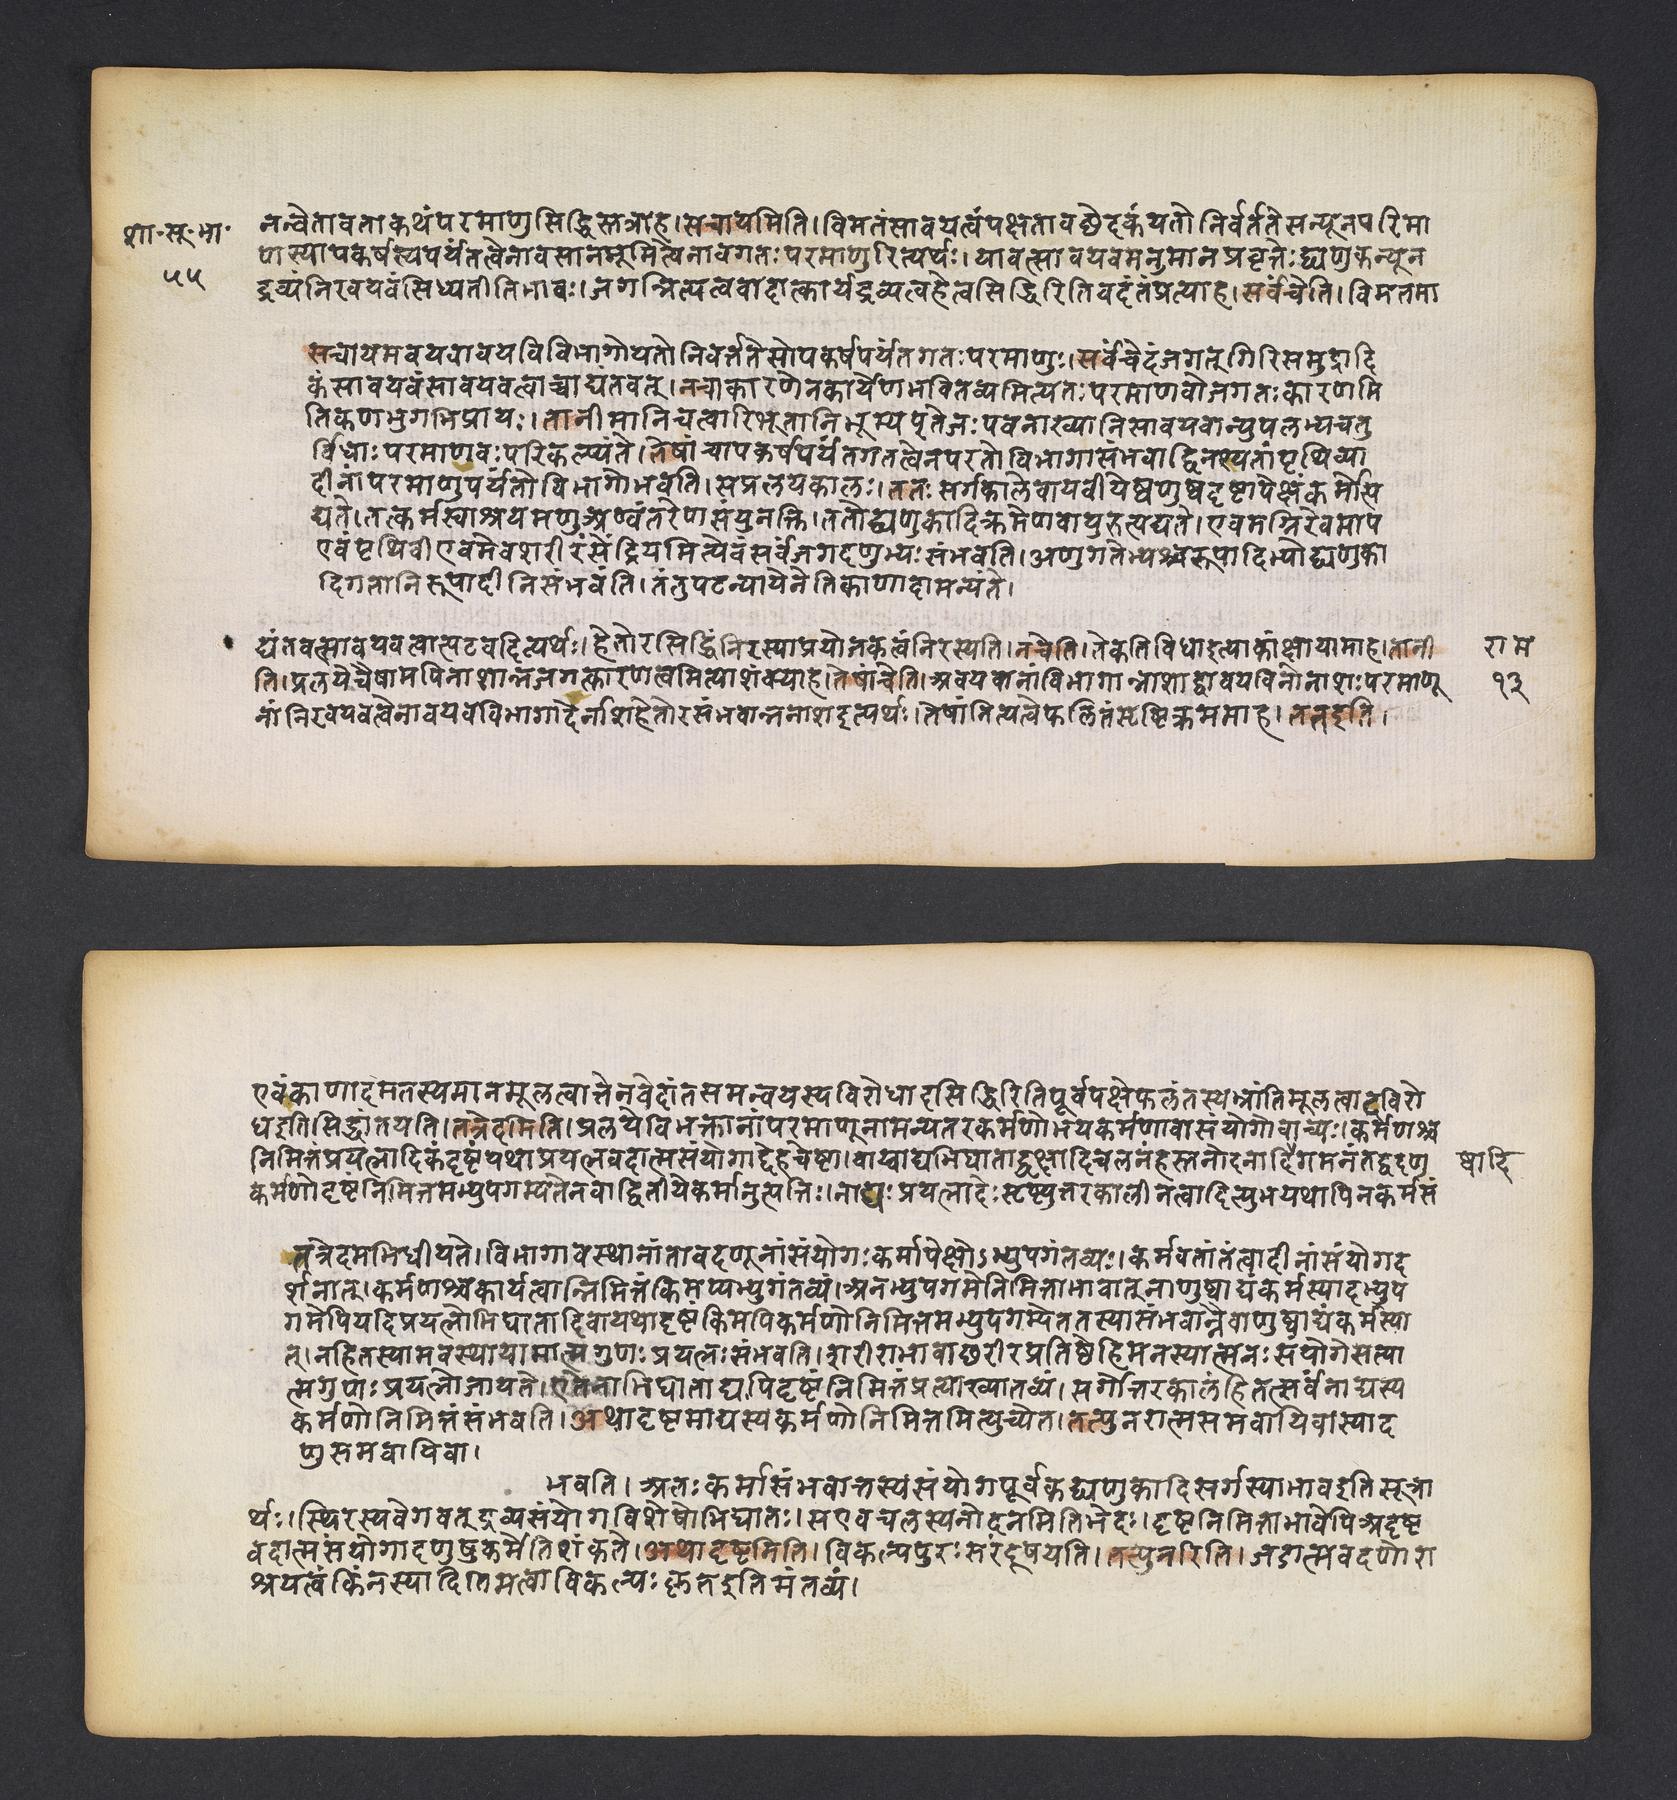 शा॰सू॰भा॰
५५
नन्वेतावताकथंपरमाणुसिद्धिस्तत्राह।सचायमिति।विमतंसावयत्वंपक्षतावछेदकंयतोनिर्वर्ततेसन्यूनपरिमा
णस्यापकर्षस्यपर्यंतत्वेनावसानभूमित्वेनावगतःपरमाणुरित्यर्थः।यावत्सावयवमनुमानप्रवृत्तेःद्व्यणुकन्यून
द्रव्यंनिरवयवंसिध्यतीतिभावः।जगन्नित्यत्ववादात्कार्यद्रव्यत्वहेत्वसिद्धिरितिवदंतंप्रत्याह।सर्वंचेति।विमतमा
सचायमवयवावयविविभागोयतोनिवर्त्ततेसोपकर्षपर्यंतगतःपरमाणुः।सर्वंचेदंजगत्गिरिसमुद्रादि
कंसावयवंसावयवत्वाच्चाद्यंतवत्।नचाकारणेनकार्येणभवितव्यमित्यतःपरमाणवोजगतःकारणमि
तिकणभुगभिप्रायः।तानीमानिचत्वारिभूतानिभूम्यप्तेजःपवनाख्यानिसावयवान्युपलभ्यचतु
र्विधाःपरमाणवःपरिकल्प्यंते।तेषांचापकर्षपर्यंतगतत्वेनपरतोविभागासंभवाद्विनश्यतांपृथिव्या
दीनांपरमाणुपर्यंतोविभागोभवति।सप्रलयकालः।ततःसर्गकालेवायवीयेष्वणुष्वदृष्टापेक्षंकर्मोत्प
द्यते।तत्कर्मस्वाश्रयमणुअण्वंतरेणसंयुनक्ति।ततोद्व्यणुकादिक्रमेणवायुरुत्पद्यते।एवमग्निरेवमाप
एवंपृथिवीएवमेवशरीरंसेंद्रियमित्येवंसर्वंजगदणुभ्यःसंभवति।अणुगतेभ्यश्चरूपादिभ्योद्व्यणुका
दिगतानिरूपादीनिसंभवंति।तंतुपटन्यायेनेतिकाणादामन्यंते।
द्यंतवत्सावयवत्वात्पटवदित्यर्थः।हेतोरसिद्धिंनिरस्याप्रयोजकत्वंनिरस्यति।नचेति।तेकतिविधाइत्याकांक्षायामाह।तानी
ति।प्रलयेचैषामपिनाशान्नजगत्कारणत्वमित्याशंक्याह।तेषांचेति।अवयवानांविभागान्नाशाद्वावयविनोनाशःपरमाणू
नांनिरवयवत्वेनावयवविभागादेर्नाशहेतोरसंभवान्ननाशइत्यर्थः।तेषांनित्यत्वेफलितंसृष्टिक्रममाह।ततइति।
राम
१३
एवंकाणादमतस्यमानमूलत्वात्तेनवेदांतसमन्वयस्यविरोधादसिद्धिरितिपूर्वपक्षेफलंतस्यभ्रांतिमूलत्वादविरो
धइतिसिद्धांतयति।तत्रेदमिति।प्रलयेविभक्तानांपरमाणूनामन्यतरकर्मणोभयकर्मणावासंयोगोवाच्यः।कर्मणश्च
निमित्तंप्रयत्नादिकंदृष्टंयथाप्रयत्नवदात्मसंयोगाद्देहचेष्टा।वाय्वाद्यभिघाताद्वृक्षादिचलनंहस्तनोदनादिषुगमनंतद्वदणु
ष्वादि
कर्मणोदृष्टंनिमित्तमभ्युपगम्यतेनवाद्वितीयेकर्मानुत्पत्तिः।नाद्यःप्रयत्नादेःसृष्ट्युत्तरकालीनत्वादित्युभयथापिनकर्मसं
तत्रेदमभिधीयते।विभागावस्थानांतावदणूनांसंयोगःकर्मापेक्षोऽभ्युपगंतव्यः।कर्मवतांतंत्वादीनांसंयोगद
र्शनात्।कर्मणश्चकार्यत्वान्निमित्तंकिमप्यभ्युगंतव्यं।अनभ्युपगमेनिमित्ताभावात्नाणुष्वाद्यंकर्मस्यादभ्युप
गमेपियदिप्रयत्नोभिघातादिवायथादृष्टंकिमपिकर्मणोनिमित्तमभ्युपगम्येततस्यासंभवान्नैवाणुष्वाद्यंकर्मस्या
त्।नहितस्यामवस्थायामात्मगुणःप्रयत्नःसंभवति।शरीराभावाछरीरप्रतिष्ठेहिमनस्यात्मनःसंयोगेसत्या
त्मगुणःप्रयत्नोजायते।एतेनाभिघाताद्यपिदृष्टंनिमित्तंप्रत्याख्यातव्यं।सर्गोत्तरकालंहितत्सर्वंनाद्यस्य
कर्मणोनिमित्तंसंभवति।अथादृष्टमाद्यस्यकर्मणोनिमित्तमित्युच्येत।तत्पुनरात्मसमवायिवास्याद
णुसमवायिवा।
भवति।अतःकर्मासंभवात्तस्यसंयोगपूर्वकद्व्यणुकादिसर्गस्याभावइतिसूत्रा
र्थः।स्थिरस्यवेगवत्द्रव्यसंयोगविशेषोभिघातः।सएवचलस्यनोदनमितिभेदः।दृष्टनिमित्ताभावेपिअदृष्ट
वदात्मसंयोगादणुषुकर्मेतिशंकते।अथादृष्टमिति।विकल्पपुरःसरंदूषयति।तत्पुनरिति।जडात्मवदणोरा
श्रयत्वंकिंनस्यादितिमत्वाविकल्पःकृतइतिमंतव्यं।